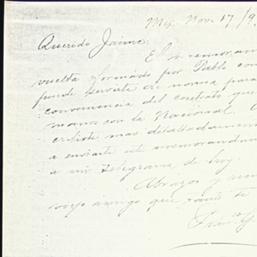 Mex. Nov. 17/9
Querido Jaime:
El memoran
vuelta formado por Pablo con
puede servirte de norma para
conveniencia del contrato que
mamos con la Nacional.
mas detalladamente
a enviarte el memorandum
a mi telegrama de hoy
Abrazos y
viejo amigo que